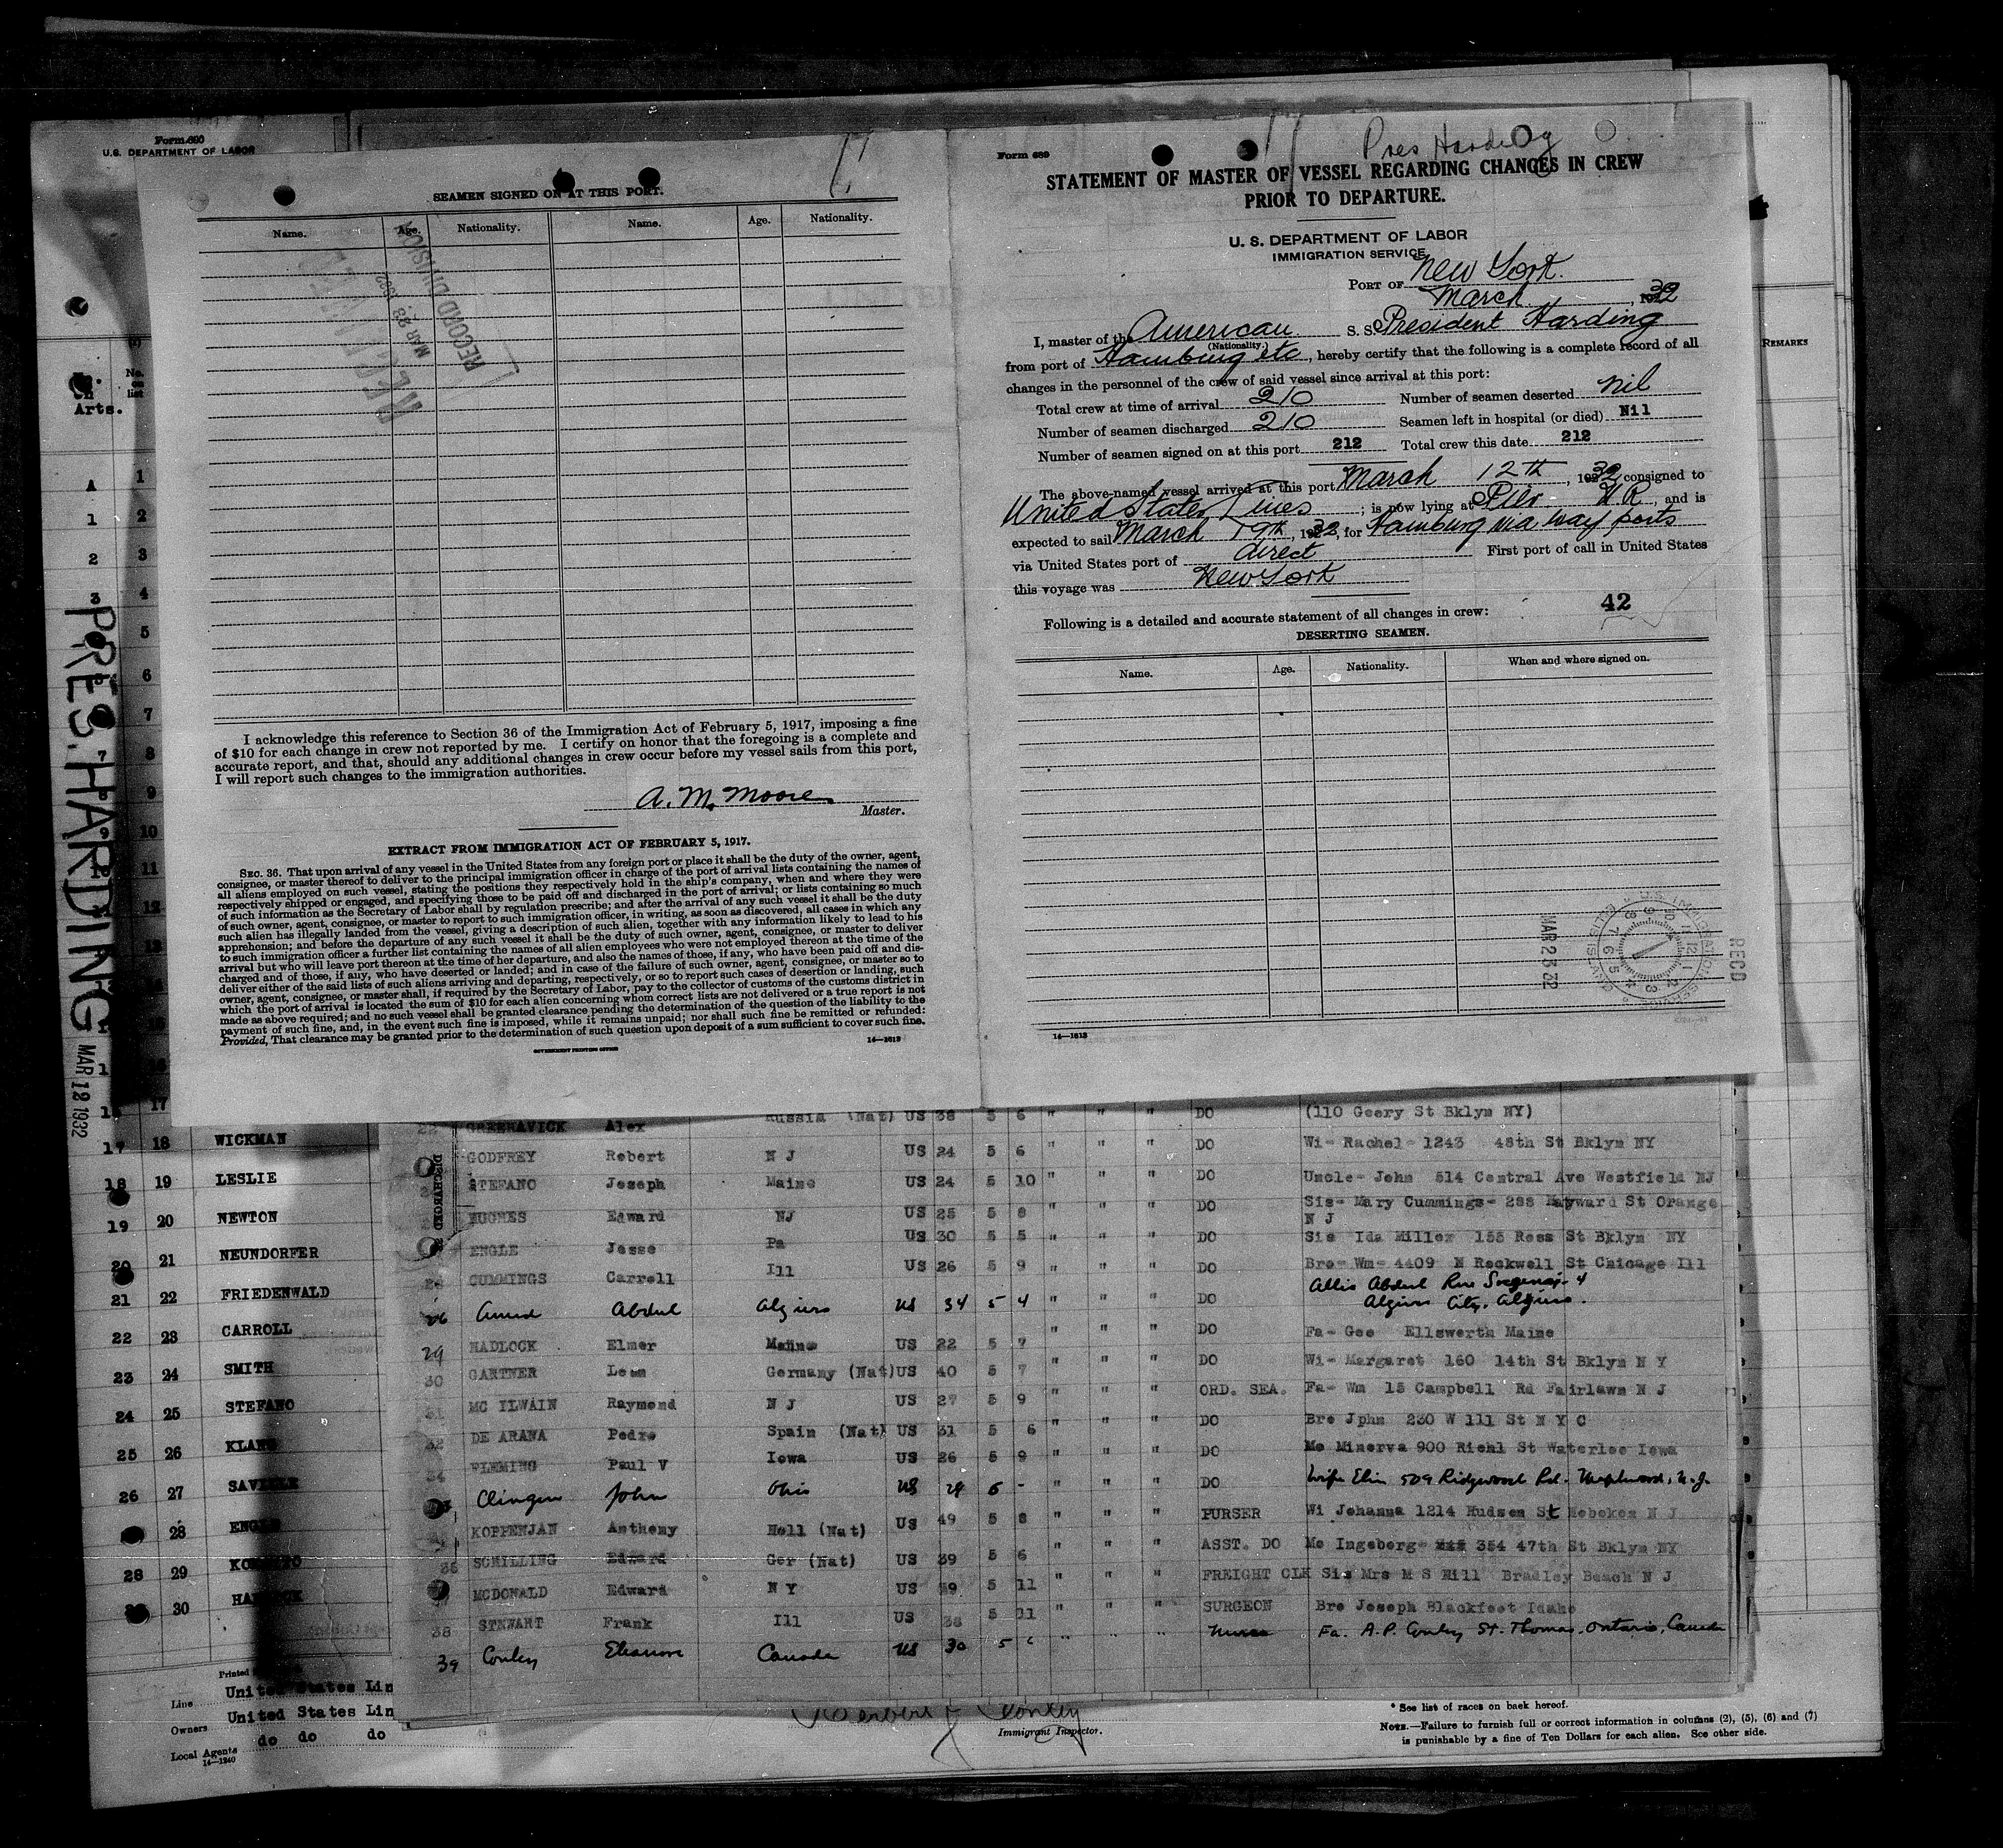 Form 690
U.S. DEPARTMENT OF LABOR
No. on list
Arts.
REMARKS
PRES. HARDING
MAR 12 1932
SEAMEN SIGNED ON AT THIS PORT.
Name. Age. Nationality. Name. Age. Nationality.
RECORD DIVISION
MAR 23 1932
I acknowledge this reference to Section 36 of the Immigration Act of February 5, 1917, imposing a fine
of $10 for each change in crew not reported by me. I certify on honor that the foregoing is a complete and
accurate report, and that, should any additional changes in crew occur before my vessel sails from this port,
I will report such changes to the immigration authorities.
A. M. Moore
Master.
EXTRACT FROM IMMIGRATION ACT OF FEBRUARY 5, 1917.
SEC. 36. That upon arrival of any vessel in the United States from any foreign port or place it shall be the duty of the owner, agent,
consignee, or master thereof to deliver to the principal immigration officer in charge of the port of arrival lists containing the names of
all aliens employed on such vessel, stating the positions they respectively hold in the ship's company, when and where they were
respectively shipped or engaged, and specifying those to be paid off and discharged in the port of arrival; or lists containing so much
of such information as the Secretary of Labor shall by regulation prescribe; and after the arrival of any such vessel it shall be the duty
of such owner, agent, consignee, or master to report to such immigration officer, in writing, as soon as discovered, all cases in which any
such alien has illegally landed from the vessel, giving a description of such alien, together with any information likely to lead to his
apprehension; and before the departure of any such vessel it shall be the duty of such owner, agent, consignee, or master to deliver
to such immigration officer a further list containing the names of all alien employees who were not employed thereon at the time of the
arrival but who will leave port thereon at the time of her departure, and also the names of those, if any, who have been paid off and dis-
charged and of those, if any, who have deserted or landed; and in case of the failure of such owner, agent, consignee, or master so to
deliver either of the said lists of such aliens arriving and departing, respectively, or so to report such cases of desertion or landing, such
owner, agent, consignee, or master shall, if required by the Secretary of Labor, pay to the collector of customs of the customs district in
which the port of arrival is located the sum of $10 for each alien concerning whom correct lists are not delivered or a true report is not
made as above required; and no such vessel shall be granted clearance pending the determination of the question of the liability to the
payment of such fine, and, in the event such fine is imposed, while it remains unpaid; nor shall such fine be remitted or refunded:
Provided, That clearance may be granted prior to the determination of such question upon deposit of a sum sufficient to cover such fine.
GOVERNMENT PRINTING OFFICE
14—1613
Form 689
Pres Harding
STATEMENT OF MASTER OF VESSEL REGARDING CHANGES IN CREW
PRIOR TO DEPARTURE.
U. S. DEPARTMENT OF LABOR
IMMIGRATION SERVICE
PORT OF New York.
March , 1932
I, master of the American S. S. President Harding
(Nationality.)
from port of Hamburg etc , hereby certify that the following is a complete record of all
changes in the personnel of the crew of said vessel since arrival at this port:
Total crew at time of arrival 210 Number of seamen deserted nil
Number of seamen discharged 210 Seamen left in hospital (or died) Nil
Number of seamen signed on at this port 212 Total crew this date 212
The above-named vessel arrived at this port March 12th , 1932, consigned to
United States Lines ; is now lying at Pier N R , and is
expected to sail March 19th , 1932, for Hamburg via way ports
via United States port of direct First port of call in United States
this voyage was New York
42
Following is a detailed and accurate statement of all changes in crew:
DESERTING SEAMEN.
Name. Age. Nationality. When and where signed on.
MAR 23 32
RECD
14—1613
17 18 WICKMAN
18 19 LESLIE
19 20 NEWTON
20 21 NEUNDORFER
21 22 FRIEDENWALD
22 23 CARROLL
23 24 SMITH
24 25 STEFANO
25 26 KLANG
26 27 SAVILLE
28 ENGLE
28 29
30
DISCHARGED
GREENAVICK Alex Russia (Nat) US 38 5 6 " " " DO (110 Geery St Bklyn NY)
GODFREY Robert N J US 24 5 6 " " " DO Wi- Rachel- 1243 48th St Bklyn NY
STEFANO Joseph Maine US 24 5 10 " " " DO Uncle- John 514 Central Ave Westfield NJ
HUGHES Edward NJ US 25 5 8 " " " DO Sis- Mary Cummings- 288 Hayward St Orange
N J
ENGLE Jesse Pa US 30 5 5 " " " DO Sis Ida Miller 155 Ross St Bklyn NY
CUMMINGS Carroll Ill US 26 5 9 " " " DO Bro- Wm- 4409 N Rockwell St Chicago Ill
Amed Abdul Algiers US 34 5 4 " " " DO Allis Abdul Rue 4
Algiers City, Algiers.
29 HADLOCK Elmer Maine US 22 5 7 " " " DO Fa- Geo Ellsworth Maine
30 GARTNER Leon Germany (Nat) US 40 5 7 " " " DO Wi- Margaret 160 14th St Bklyn N Y
31 MC ILWAIN Raymond N J US 27 5 9 " " " ORD. SEA. Fa- Wm 15 Campbell Rd Fairlawn N J
32 DE ARANA Pedro Spain (Nat) US 31 5 6 " " " DO Bro Jphn 230 W 111 St N Y C
FLEMING Paul V Iowa US 26 5 9 " " " DO Mo Minerva 900 Riehl St Waterloo Iowa
Clingen John Ohio US 29 6 - " " " DO Wife Elin 509 Ridgewood Rd. Maplewood, N.J.
KOPPENJAN Anthony Holl (Nat) US 49 5 8 " " " PURSER Wi Johanna 1214 Hudson St Hoboken N J
36 SCHILLING Edward Ger (Nat) US 39 5 6 " " " ASST. DO Mo Ingeborg- 354 47th St Bklyn NY
MCDONALD Edward N Y US 59 5 11 " " " FREIGHT CLK Sis Mrs M S Hill Bradley Beach N J
38 STEWART Frank Ill US 38 5 11 " " " SURGEON Bro Joseph Blackfoot Idaho
39 Conley Eleanore Canada US 30 5 6 " " " Nurse Fa. A.P. Conley St. Thomas, Ontario, Canada
Line United States Lin
Owners United States Lin
Local Agents do do do
14—1240
Immigrant Inspector.
* See list of races on back hereof.
NOTE.—Failure to furnish full or correct information in columns (2), (5), (6) and (7)
is punishable by a fine of Ten Dollars for each alien. See other side.